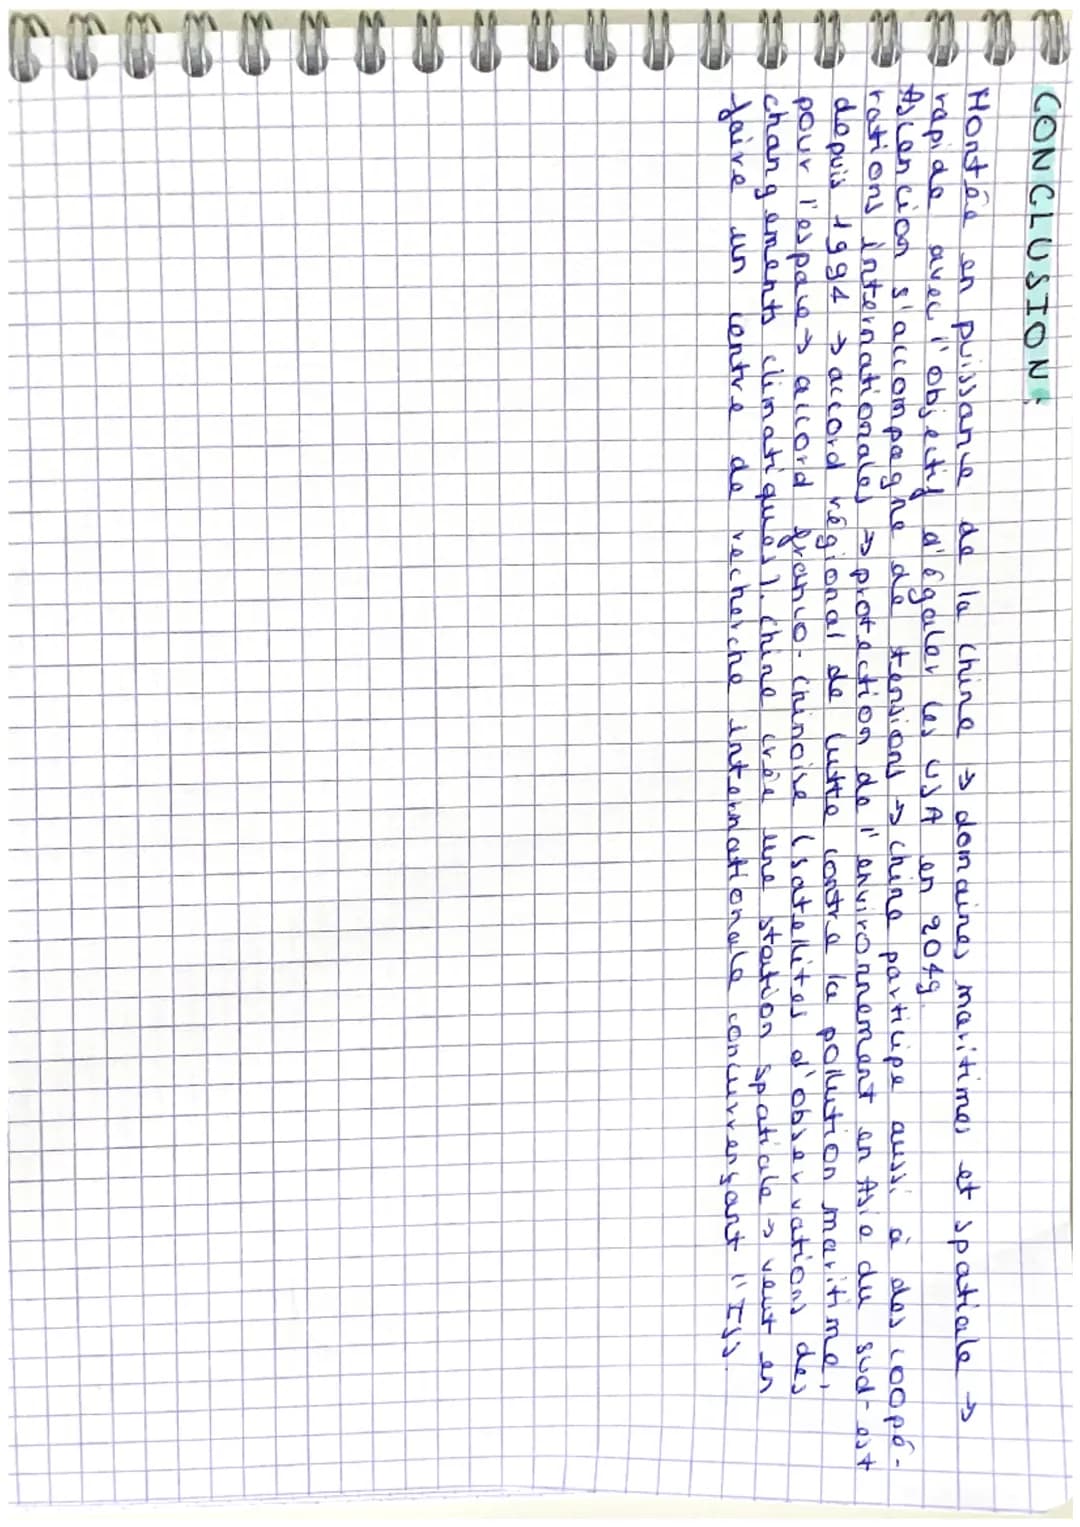 CONCLUSION :
Montée en puissance de la chine → domaines maritimes et spatiale →
rapide avec l'objectif d'égaler les USA en 2049.
Ascencion s'accompagne de tensions → chine participe aussi à des coopé-
rations internationales → protection de l'environnement en Asie du sud-est
depuis 1994 → accord régional de lutte contre la pollution maritime,
pour l'espace → accord franco-chinoise (satellites d'observations des
changements climatiques). chine crée une station spatiale → veut en
faire un centre de recherche internationale concurrençant l'ISS.